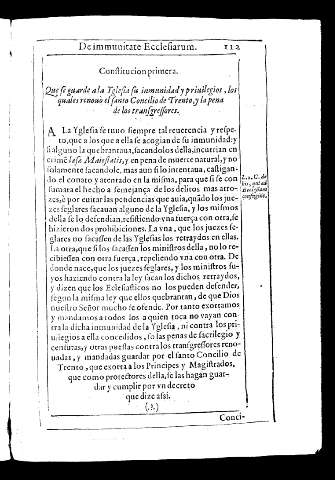 De immunitate Ecclesiarum. 112
Constitucion primera.
Que se guarde a la Yglesia su inmunidad y priuilegios, los
quales renouò el santo Concilio de Trento, y la pena
de los transgressores.
A La Yglesia se tuuo siempre tal reuerencia y respe-
to, que a los que a ella se acogian de su inmunidad: y
si alguno la quebrantaua, sacandolos della, incurrian en
crimẽ læsæ Maiestatis, y en pena de muerte natural, y no
solamente sacandole, mas aun si lo intentaua, castigan-
do el conato y atentado en la misma, para que si se con
sumara el hecho a semejança de los delitos mas atro-
zes, è por euitar las pendencias que auia, quãdo los jue-
zes seglares sacauan alguno de la Yglesia, y los mismos
della se lo defendian, resistiendo vna fuerça con otra, se
hizieron dos prohibiciones. La vna, que los juezes se-
glares no sacassen de las Yglesias los retraydos en ellas.
La otra, que si los sacassen los ministros della, no lo re-
cibiessen con otra fuerça, repeliendo vna con otra. De
donde nace, que los juezes seglares, y los ministros su-
yos haziendo contra la ley sacan los dichos retraydos,
y dizen que los Eclesiasticos no los pueden defender,
segun la misma ley que ellos quebrantan, de que Dios
nuestro Señor mucho se ofende. Por tanto exortamos
y mandamos a todos los a quien toca no vayan con-
tra la dicha inmunidad de la Yglesia, ni contra los pri-
uilegios a ella concedidos, so las penas de sacrilegio y
censuras, y otras puestas contra los transgressores reno-
uadas, y mandadas guardar por el santo Concilio de
Trento, que exorta a los Principes y Magistrados,
que como protectores della, se las hagan guar-
dar y cumplir por vn decreto
que dize assi.
(.?.)
Conci-